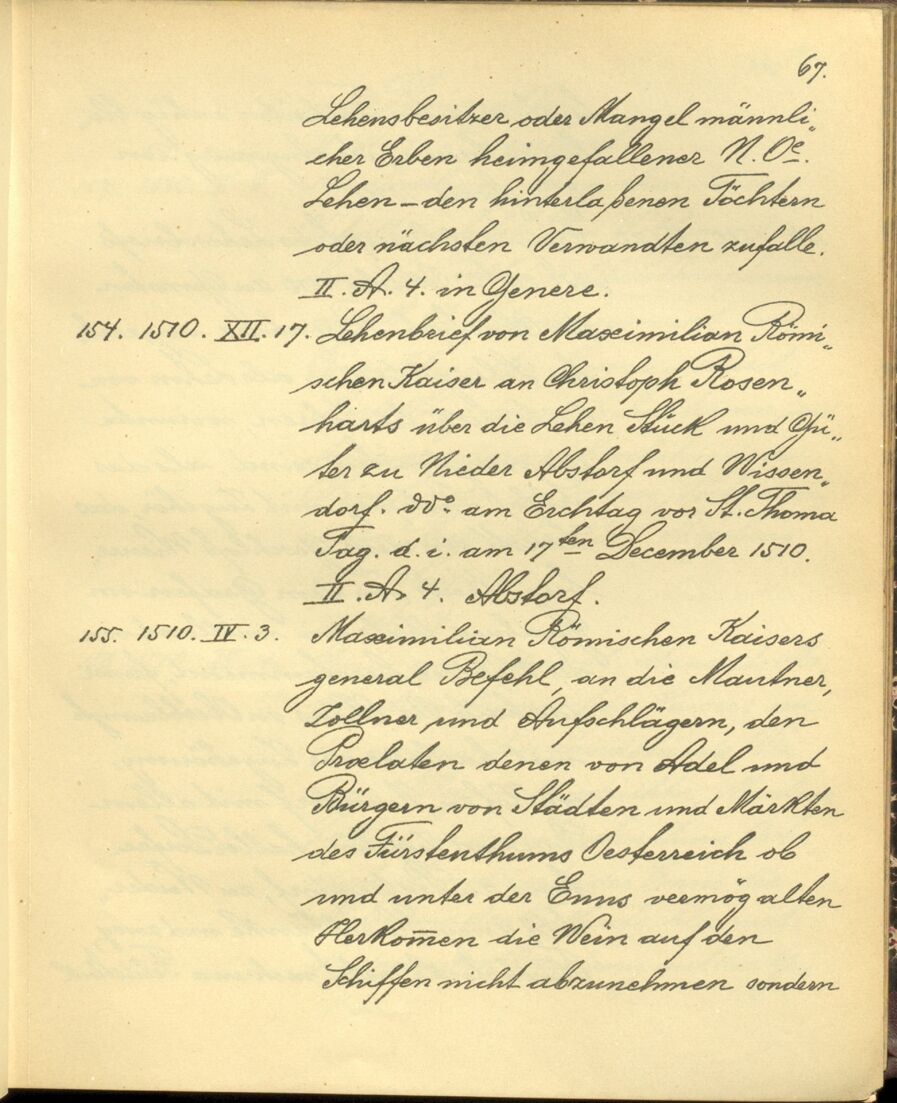 67.
Lehensbesitzer oder Mangel männli„
cher Erben heimgefallener N. Oe.
Lehen – den hinterlaßenen Töchtern
oder nächsten Verwandten zufalle.
II. A. 4. in Genere.
154. 1510. XII. 17. Lehenbrief von Maximilian Römi„
schen Kaiser an Christoph Rosen„
harts über die Lehen Stück und Gü„
ter zu Nieder Abstorf und Wissen„
dorf. ddo. am Erchtag vor St. Thoma
Tag. d. i. am 17ten December 1510.
II. A. 4. Abstorf.
155. 1510. IV. 3. Maximilian Römischen Kaisers
general Befehl, an die Mautner,
Zollner und Aufschlägern, den
Praelaten denen von Adel und
Bürgern von Städten und Märkten
des Fürstenthums Oesterreich ob
und unter der Enns vermög alten
Herkom̅en die Wein auf den
Schiffen nicht abzunehmen sondern